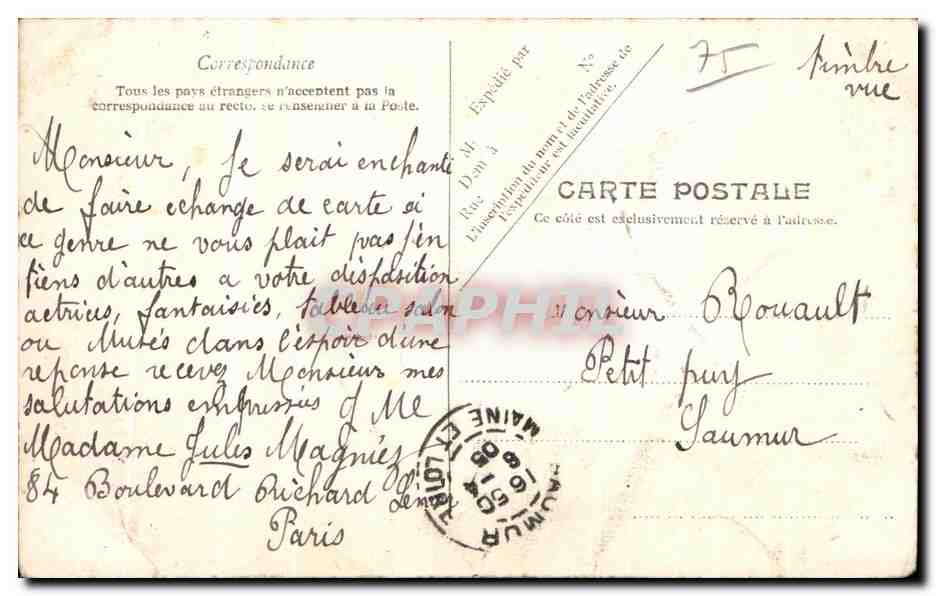 Correspondance
Tous les pays étrangers n'acceptent pas la
correspondance au recto. se renseigner à la Poste.
Monsieur, Je serai enchanté
de faire echange de carte si
ce genre ne vous plait pas j'en
tiens d'autres a votre disposition
actrices, fantaisies, tableau salon
ou Musés dans l'éspoir d'une
reponse recevez Monsieur mes
salutations empressées
Madame Jules Magniez
84 Boulevard Richard Lenoir
Paris
Expédié par
M
Dem à
Rue
No
L'inscription du nom et de l'adresse de
l'expéditeur est facultative.
75
timbre
vue
CARTE POSTALE
Ce côté est exclusivement réservé à l'adresse.
Monsieur Rouault
Petit puy
Saumur
SAUMUR
MAINE ET LOIRE
CPAPHIL